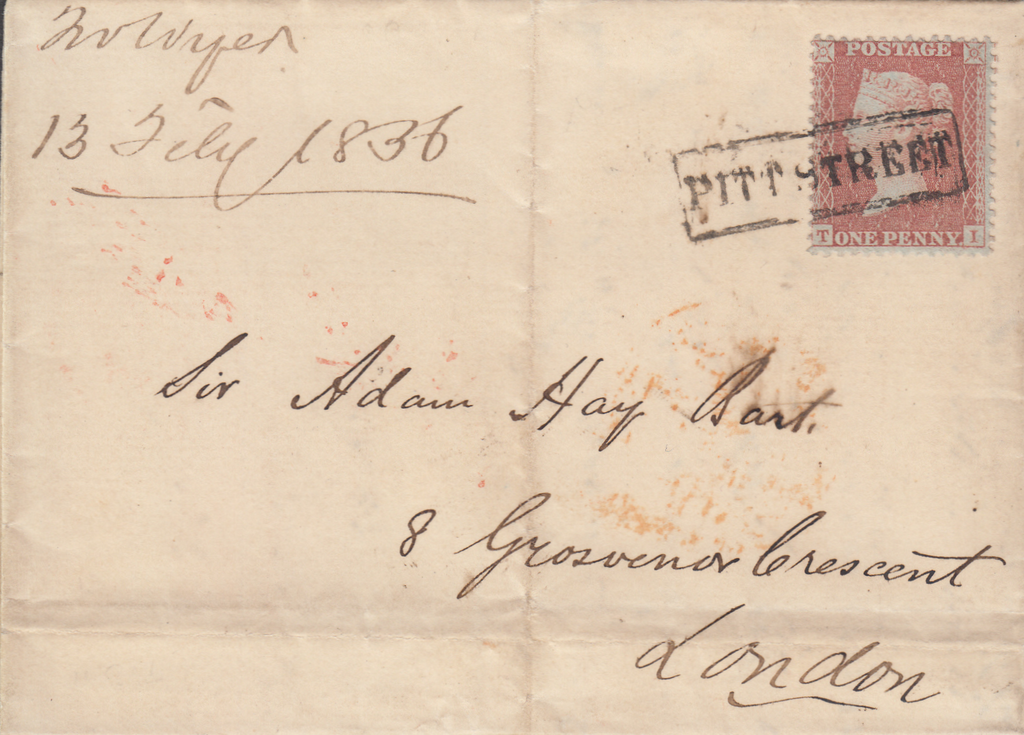 13 Feby 1856
POSTAGE
PITT STREET
T ONE PENNY I
Sir Adam Hay Bart.
8 Grosvenor Crescent
London